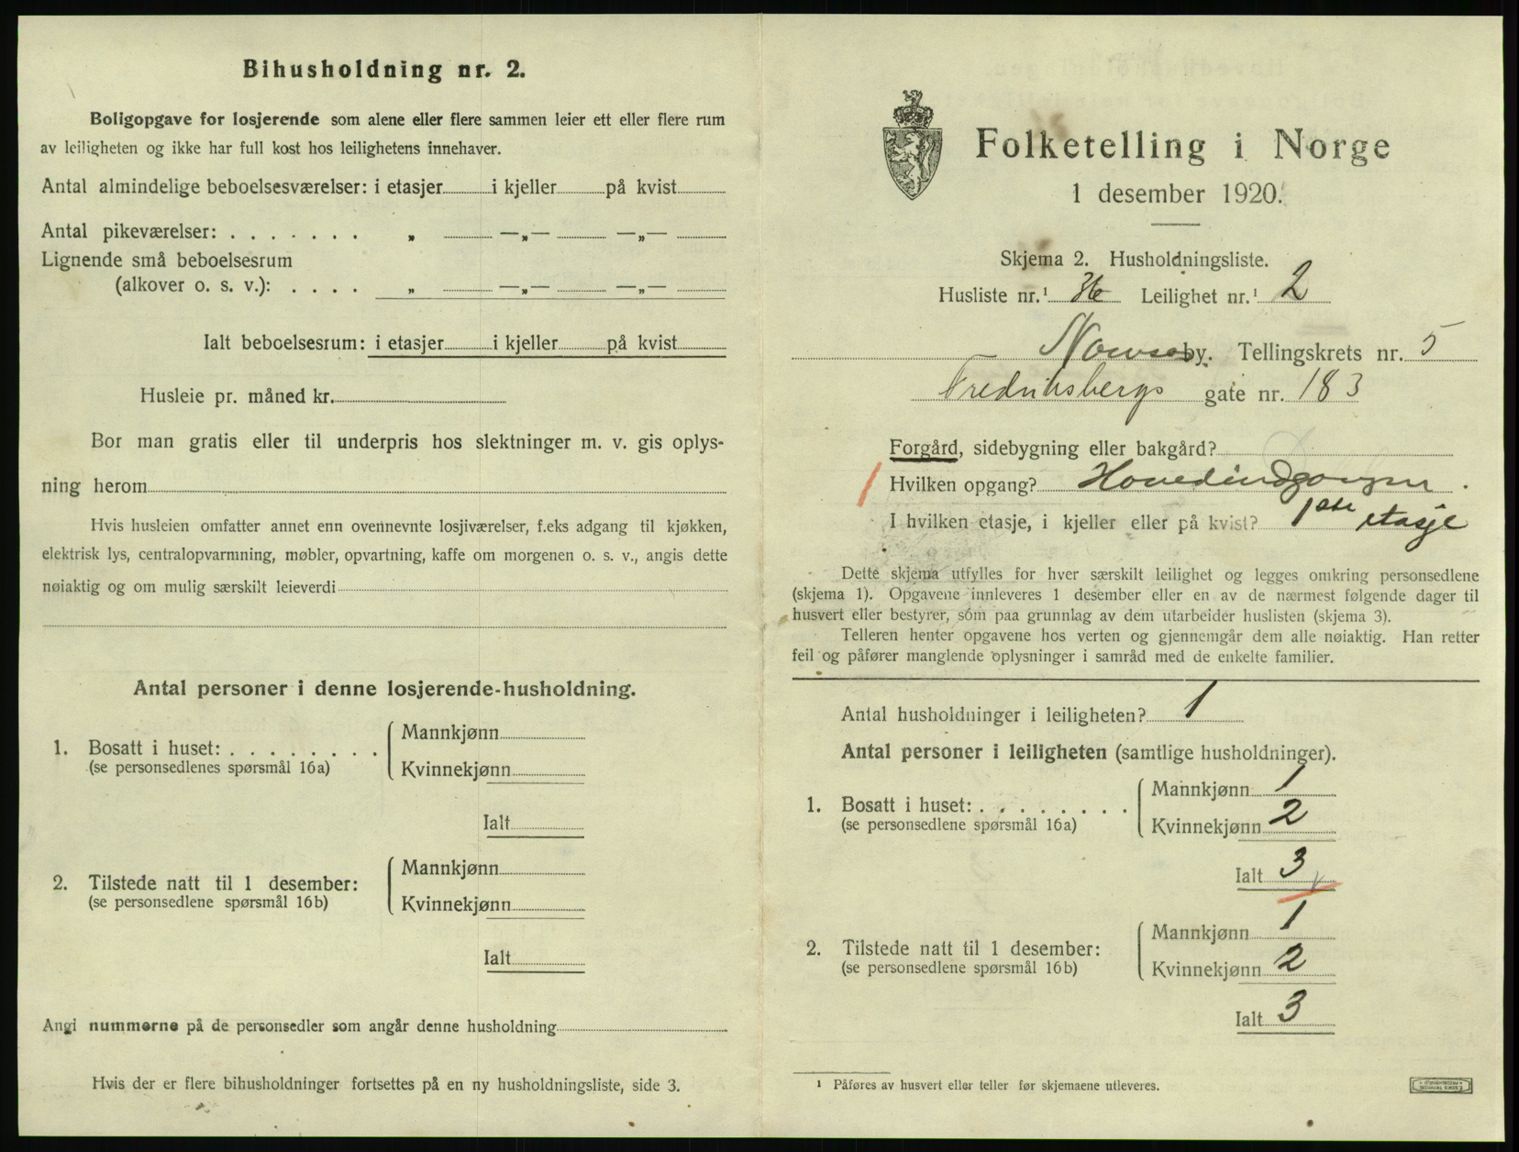 Bihusholdning nr. 2.
Boligopgave for losjerende som alene eller flere sammen leier ett eller flere rum
av leiligheten og ikke har full kost hos leilighetens innehaver.
Antal almindelige beboelsesværelser: i etasjer i kjeller på kvist
Antal pikeværelser: . . . . . . . „ —„— —„—
Lignende små beboelsesrum
(alkover o. s. v.): . . . . „ —„— —„—
Ialt beboelsesrum: i etasjer i kjeller på kvist
Husleie pr. måned kr.
Bor man gratis eller til underpris hos slektninger m. v. gis oplys-
ning herom
Hvis husleien omfatter annet enn ovennevnte losjiværelser, f.eks adgang til kjøkken,
elektrisk lys, centralopvarmning, møbler, opvartning, kaffe om morgenen o. s. v., angis dette
nøiaktig og om mulig særskilt leieverdi
Antal personer i denne losjerende-husholdning.
1. Bosatt i huset: . . . . . . . .
(se personsedlenes spørsmål 16a)
Mannkjønn
Kvinnekjønn
Ialt
2. Tilstede natt til 1 desember:
(se personsedlene spørsmål 16b)
Mannkjønn
Kvinnekjønn
Ialt
Angi nummerne på de personsedler som angår denne husholdning
Hvis der er flere bihusholdninger fortsettes på en ny husholdningsliste, side 3.
Folketelling i Norge
1 desember 1920.
Skjema 2. Husholdningsliste.
Husliste nr.¹ 36 Leilighet nr.¹ 2
by. Tellingskrets nr. 5
Fredriksbergs gate nr. 183
Forgård, sidebygning eller bakgård?
Hvilken opgang? Hovedindgangen.
I hvilken etasje, i kjeller eller på kvist? 1ste etasje
Dette skjema utfylles for hver særskilt leilighet og legges omkring personsedlene
(skjema 1). Opgavene innleveres 1 desember eller en av de nærmest følgende dager til
husvert eller bestyrer, som paa grunnlag av dem utarbeider huslisten (skjema 3).
Telleren henter opgavene hos verten og gjennemgår dem alle nøiaktig. Han retter
feil og påfører manglende oplysninger i samråd med de enkelte familier.
Antal husholdninger i leiligheten? 1
Antal personer i leiligheten (samtlige husholdninger).
1. Bosatt i huset: . . . . . . . .
(se personsedlene spørsmål 16a)
Mannkjønn 1
Kvinnekjønn 2
Ialt 3
2. Tilstede natt til 1 desember:
(se personsedlene spørsmål 16b)
Mannkjønn 1
Kvinnekjønn 2
Ialt 3
¹ Påføres av husvert eller teller før skjemaene utleveres.